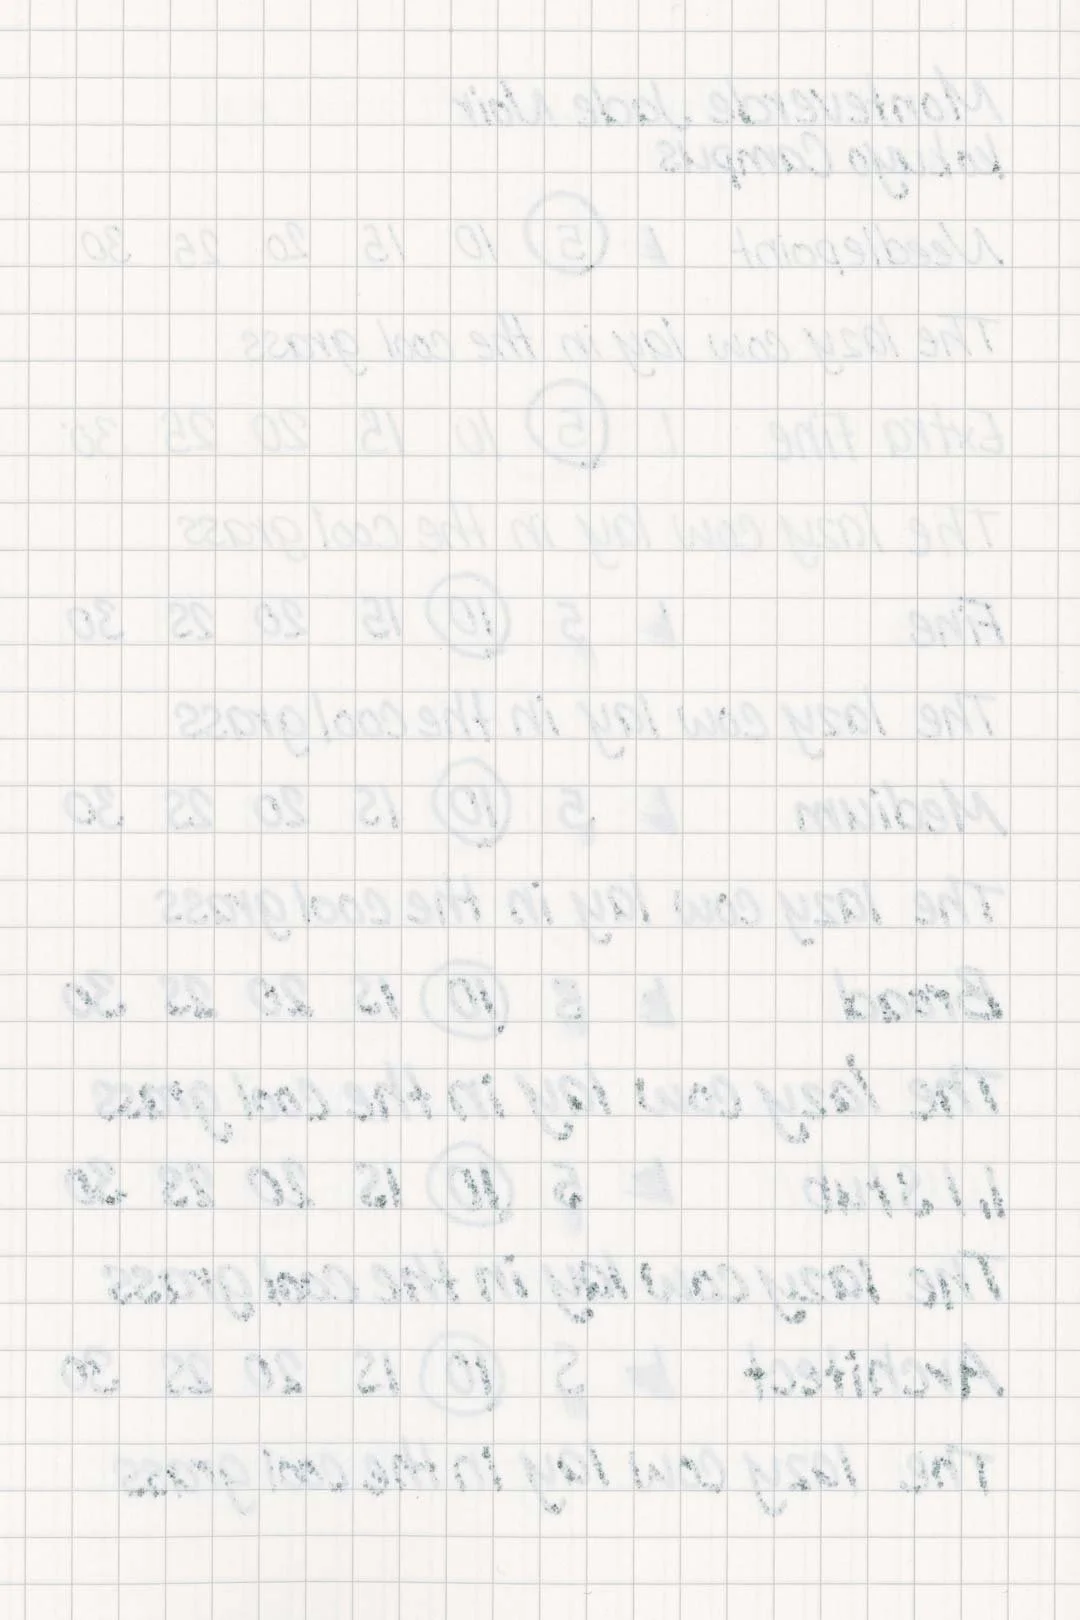 Monteverde Jade Noir
Kokuyo Campus
Needlepoint L 5 10 15 20 25 30
The lazy cow lay in the cool grass
Extra Fine L 5 10 15 20 25 30
The lazy cow lay in the cool grass
Fine L 5 10 15 20 25 30
The lazy cow lay in the cool grass
Medium L 5 10 15 20 25 30
The lazy cow lay in the cool grass
Broad L 5 10 15 20 25 30
The lazy cow lay in the cool grass
5 10 15 20 25 30
The lazy cow lay in the cool grass
Architect L 5 10 15 20 25 30
The lazy cow lay in the cool grass